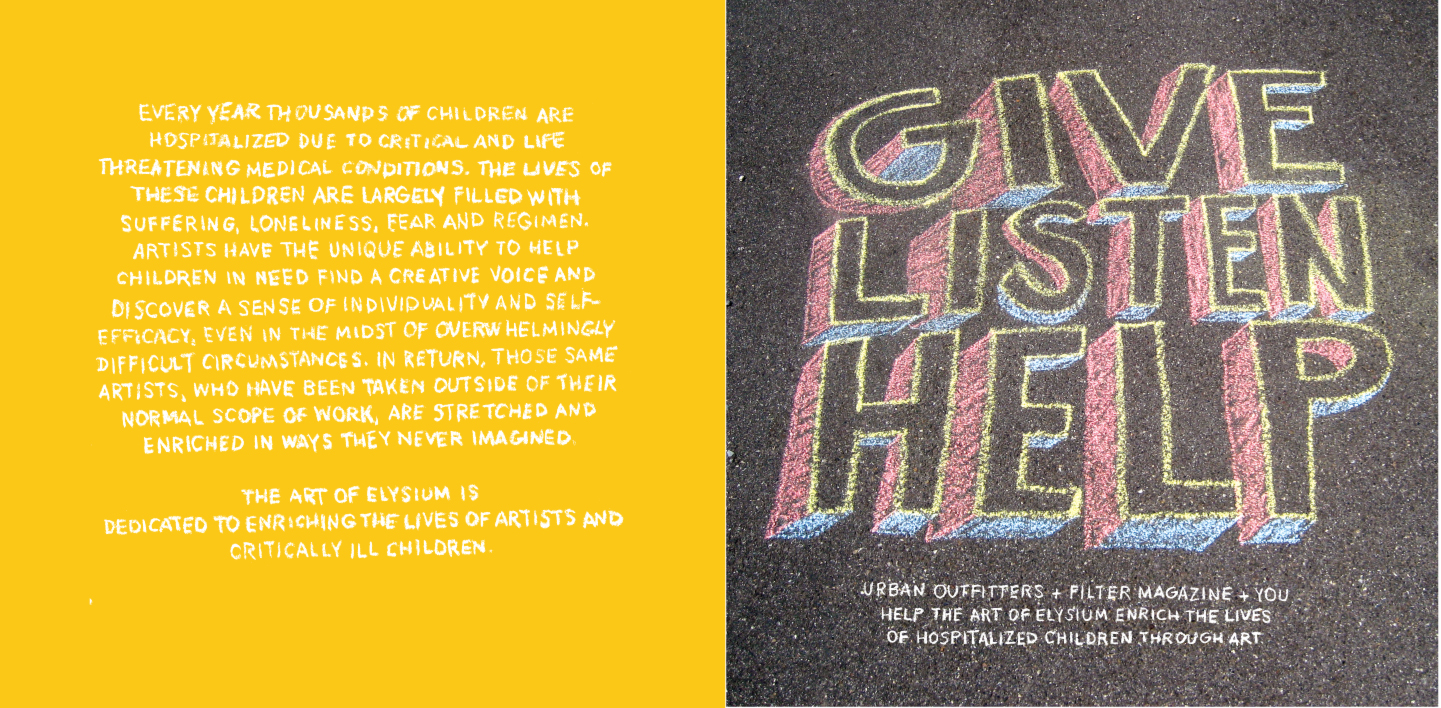 EVERY YEAR THOUSANDS OF CHILDREN ARE
HOSPITALIZED DUE TO CRITICAL AND LIFE
THREATENING MEDICAL CONDITIONS. THE LIVES OF
THESE CHILDREN ARE LARGELY FILLED WITH
SUFFERING, LONELINESS, FEAR AND REGIMEN.
ARTISTS HAVE THE UNIQUE ABILITY TO HELP
CHILDREN IN NEED FIND A CREATIVE VOICE AND
DISCOVER A SENSE OF INDIVIDUALITY AND SELF-
EFFICACY, EVEN IN THE MIDST OF OVERWHELMINGLY
DIFFICULT CIRCUMSTANCES. IN RETURN, THOSE SAME
ARTISTS, WHO HAVE BEEN TAKEN OUTSIDE OF THEIR
NORMAL SCOPE OF WORK, ARE STRETCHED AND
ENRICHED IN WAYS THEY NEVER IMAGINED.
THE ART OF ELYSIUM IS
DEDICATED TO ENRICHING THE LIVES OF ARTISTS AND
CRITICALLY ILL CHILDREN.
GIVE
LISTEN
HELP
URBAN OUTFITTERS + FILTER MAGAZINE + YOU
HELP THE ART OF ELYSIUM ENRICH THE LIVES
OF HOSPITALIZED CHILDREN THROUGH ART